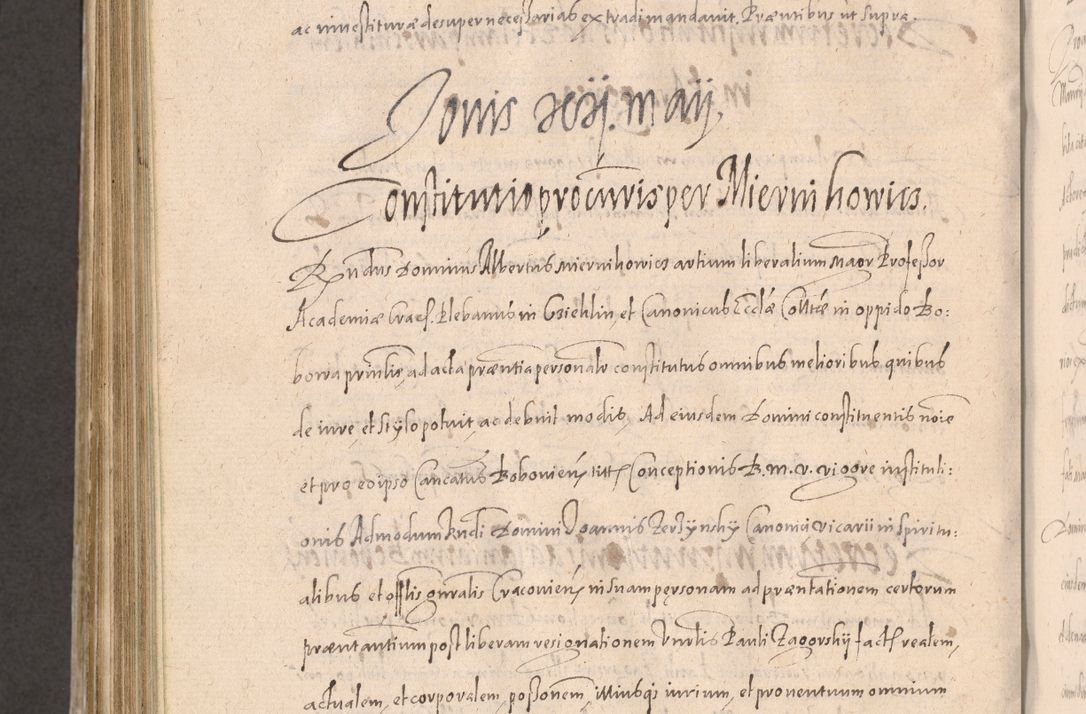 ac investituræ desuper necessarias extradi mandavit. Præntibus ut supra.
Jovis xxij. maij.
Constitutio procuris per Miernikowics.
Rndus Dominus Albertus miernikowics artium liberalium magr Professor
Academiæ Crac. Plebanus in Gziehlin, et Canonicus Ecclæ Colltæ in oppido Bo:
bowa prinlis, ad acta præntia personalr constitutus omnibus melioribus quibus
de iure, et stylo potuit, ac debuit modis, Ad eiusdem Domini constituentis noie
et pro eo ipso Cancatus Bobovien, titt Conceptionis B. m. v. vigore instituti:
onis Admodum Rndi Domini Joannis Zerzynsky Canonici vicarii in spiritu:
alibus et offlis gnralis Cracovien, in suam personam ad præntationem certorum
præntantium post liberam resignationem Vnrlis Pauli Zagorskij fact realem,
actualem, et corporalem, possonem, illiusqi iurium, et proventuum omnium